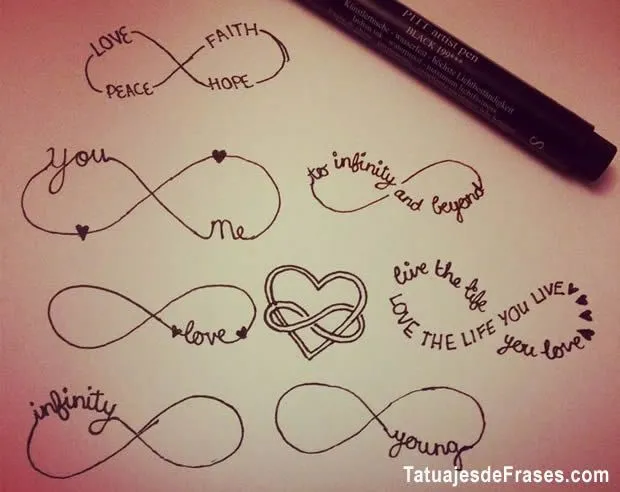 PITT artist pen
BLACK 199***
S
LOVE
FAITH
PEACE
HOPE
You
Me
to infinity
and beyond
love
live the life
LOVE THE LIFE YOU LIVE
you love
infinity
young
TatuajesdeFrases.com